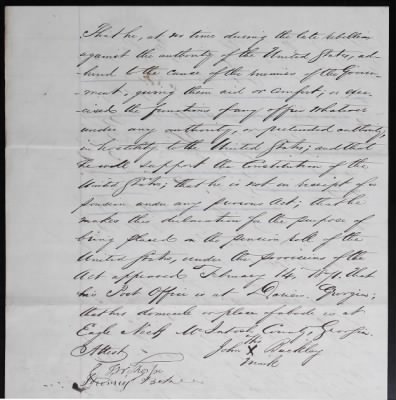 That he, at no time during the late rebellion
against the authority of the United States, ad-
hered to the cause of the enemies of the Govern-
ment, giving them aid or comfort, or exer-
cised the functions of any office whatever
under any authority, or pretended authority,
in hostility to the United States; and that
he will support the Constitution of the
United States; that he is not in receipt of a
pension under any previous Act; that he
makes this declaration for the purpose of
being placed on the pension roll of the
United States, under the provisions of the
Act approved February 14, 1871, that
his Post Office is at Darien, Georgia;
that his domicile or place of abode is at
Eagle Neck McIntosh County, Georgia.
Attest his
John X Buckley
mark